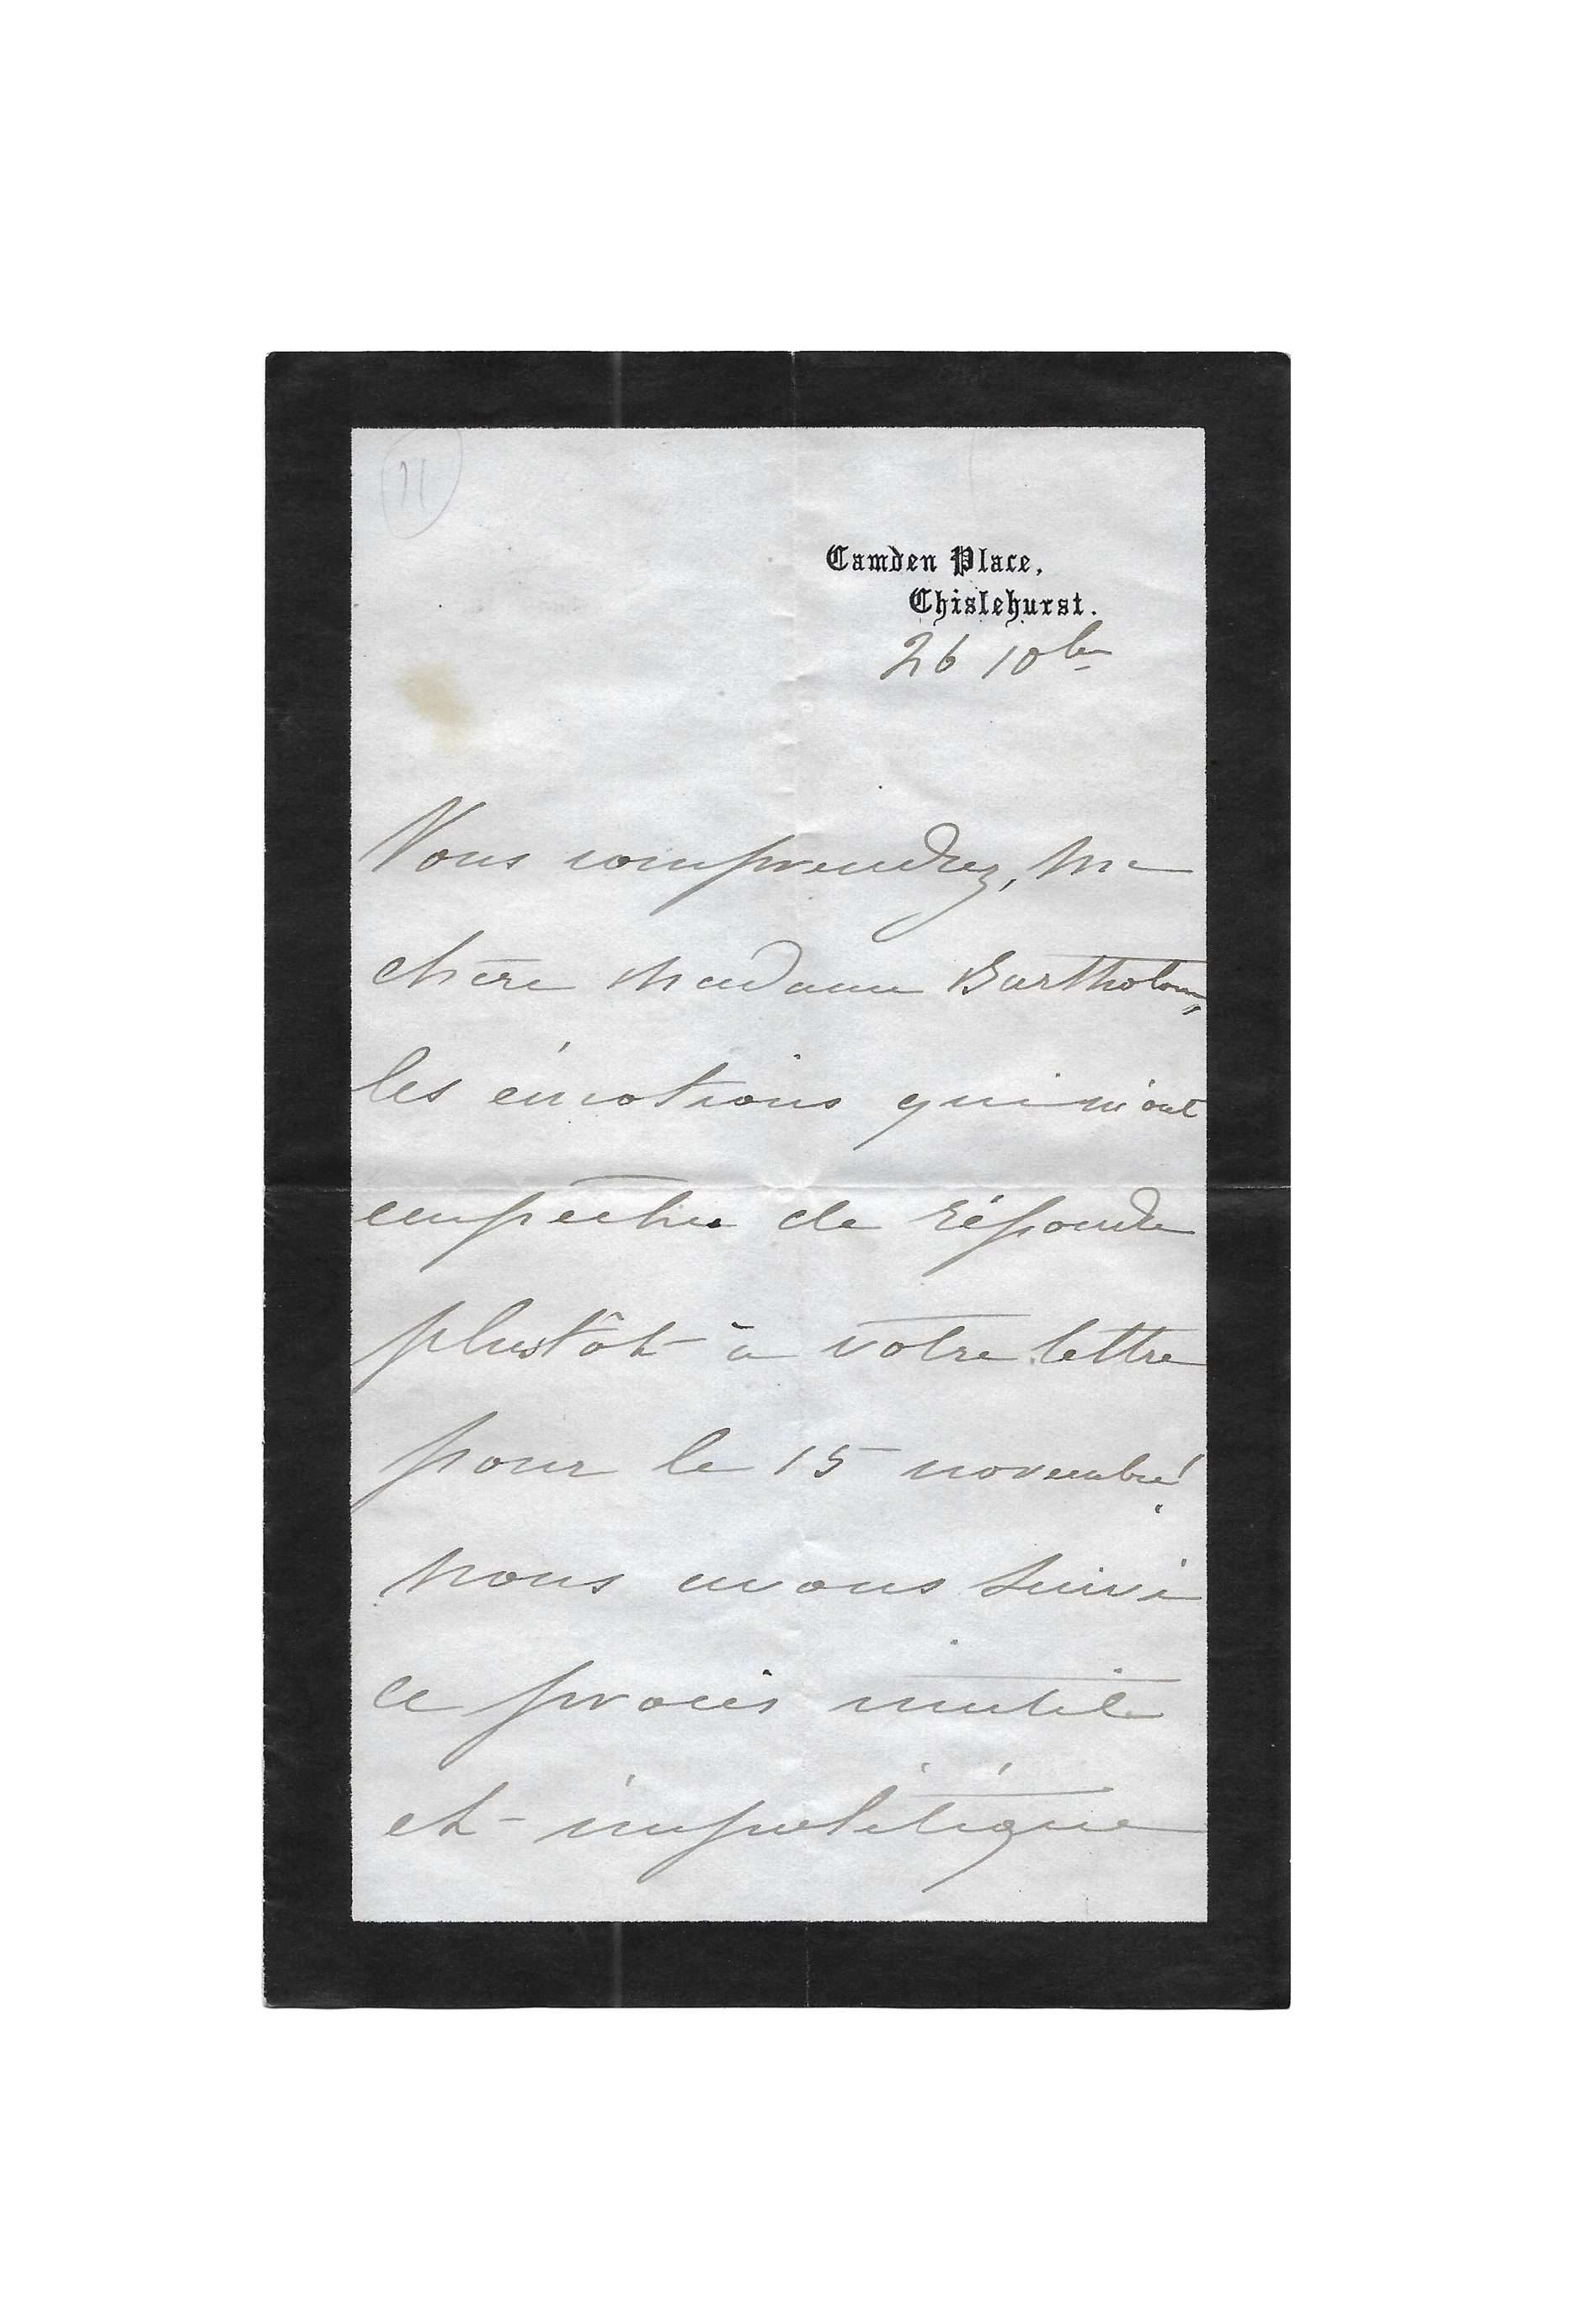 71
Camden Place,
Chislehurst.
26 10bre
Vous comprendrez, ma
chère Madame Bartholoni,
les émotions qui m'ont
empechée de répondre
plustôt à votre lettre
pour le 15 novembre!
Nous avons suivi
ce procès inutile
et impolitique